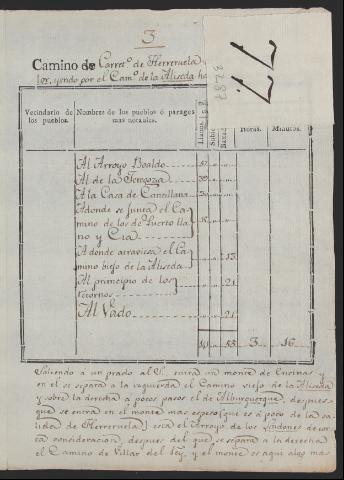 3
77
3287
Camino de Carret.º de Herreruela
los, yendo por el Cam.º de la Aliseda ha
Vecindario de los pueblos.
Nombres de los pueblos ó parages mas notables.
Llanos.
Subir
Baxar
Horas.
Minutos.
Al Arroyo Boaldo
Al de la
A la Casa de Cancillana
Adonde se junta el Ca
mino de los de Puerto lla
no y Cia
Adonde atraviesa el Ca
mino biejo de la Aliseda 13
Al principio de los
retornos 21
Al Vado 21
141 55 3 16
Saliendo á un prado al S. entra un monte de Encinas y
en el se separa a la izquierda el Camino viejo de la Aliseda
y sobre la derecha a pocos pasos el de Alburquerque, despues
que se entra en el monte mas espeso (que es á poco de la sa
lida de Herreruela) está el Arroyo de los de cor
ta consideracion, despues del que se separa a la derecha
el Camino de Villar del Rey, y el monte es aqui algo mas